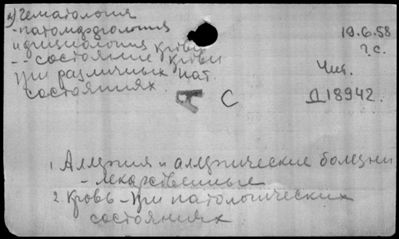 4) Гематология
- патоморфология
и физиология крови
- состояние крови
при различных пат.
состояниях.
19.6.58
г. с.
Чит.
Д 18942.
Я С
1. Аллергия и аллергические болезни
- лекарственные
2. Кровь - при патологических
состояниях